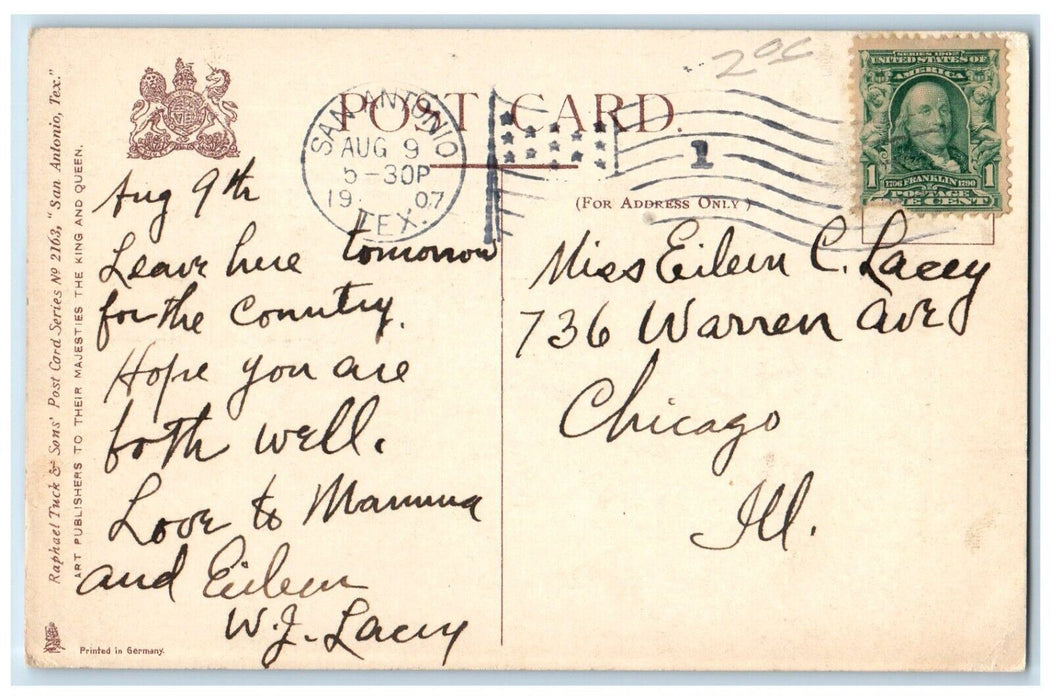 Raphael Tuck & Sons' Post Card Series Nº 2163, "San Antonio, Tex."
ART PUBLISHERS TO THEIR MAJESTIES THE KING AND QUEEN.
POST CARD.
SAN ANTONIO
AUG 9
5-30P
19 07
TEX.
1
20c
SERIES 1902
UNITED STATES OF
AMERICA
1706 FRANKLIN 1790
1 1
POSTAGE
ONE CENT
(FOR ADDRESS ONLY)
Aug 9th
Leave here tomorrow
for the Country.
Hope you are
both well.
Love to Mamma
and Eileen
W. J. Lacey
Miss Eileen C. Lacey
736 Warren Ave
Chicago
Ill.
Printed in Germany.